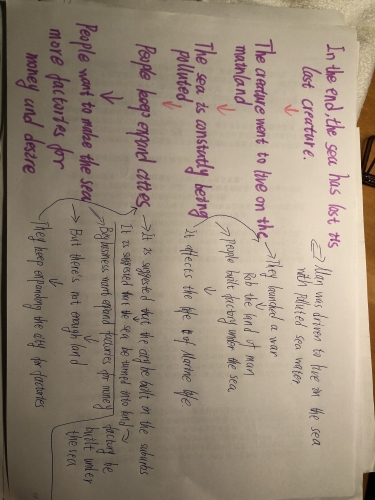 In the end, the sea has lost its
last creature.
The creature went to live on the
mainland
The sea is constantly being
polluted
People keep expand cities
People want to make the sea
more factories for
money and desire
Man was driven to live in the sea
with polluted sea water
They launched a war
Rob the land of man
People built factory under the sea
It affects the life of Marine life
It is suggested that the city be built on the suburbs
It is suggested that the sea be turned into land
Big business want expand factories for money
factory be
built under
the sea
But there's not enough land
They keep expanding the city for factories